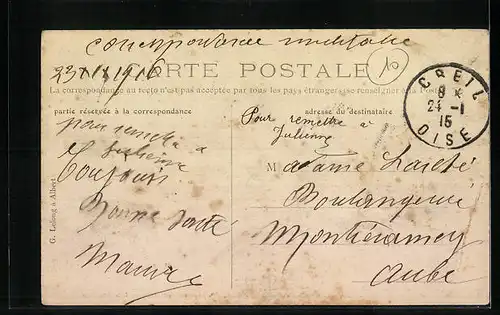 correspondance militaire
CARTE POSTALE
10
La correspondance au recto n'est pas acceptée par tous les pays étrangers se renseigner à la Poste
partie réservée à la correspondance
adresse du destinataire
CREIL
OISE
Pour remettre à
Julienne
pour remettre à
Julienne
Toujours
Bonne santé
G. Lelong à Albert
Madame
Boulangerie
Montiéramey
Aube